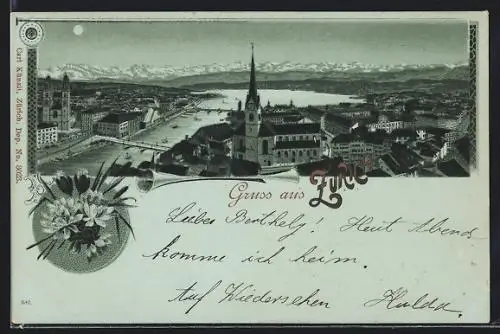 Carl Künzli, Zürich. Dep. No. 3023.
Gruss aus Zürich
Liebes Berthely! Heut Abend
komme ich heim.
Auf Wiedersehen Hulda.